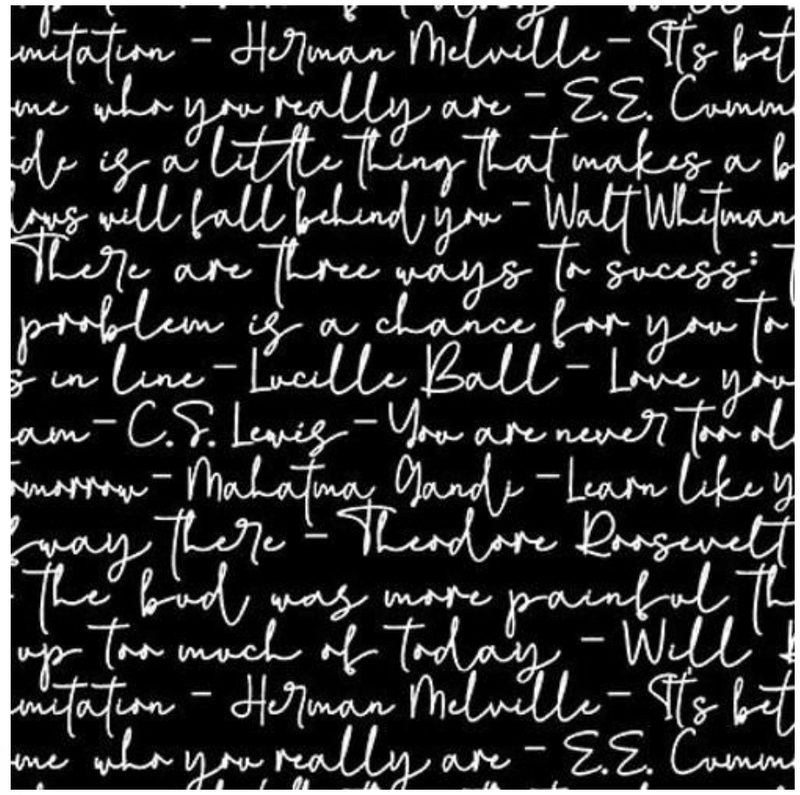 imitation - Herman Melville - It's bet
me who you really are - E.E. Cumm
de is a little thing that makes a b
lows will fall behind you - Walt Whitman
There are three ways to sucess:
problem is a chance for you to
s in line - Lucille Ball - Love you
am - C.S. Lewis - You are never too ol
omorrow - Mahatma Gandi - Learn like y
fway there - Theodore Roosevelt
The bud was more painful th
up too much of today - Will
mitation - Herman Melville - It's bet
me who you really are - E.E. Cumm